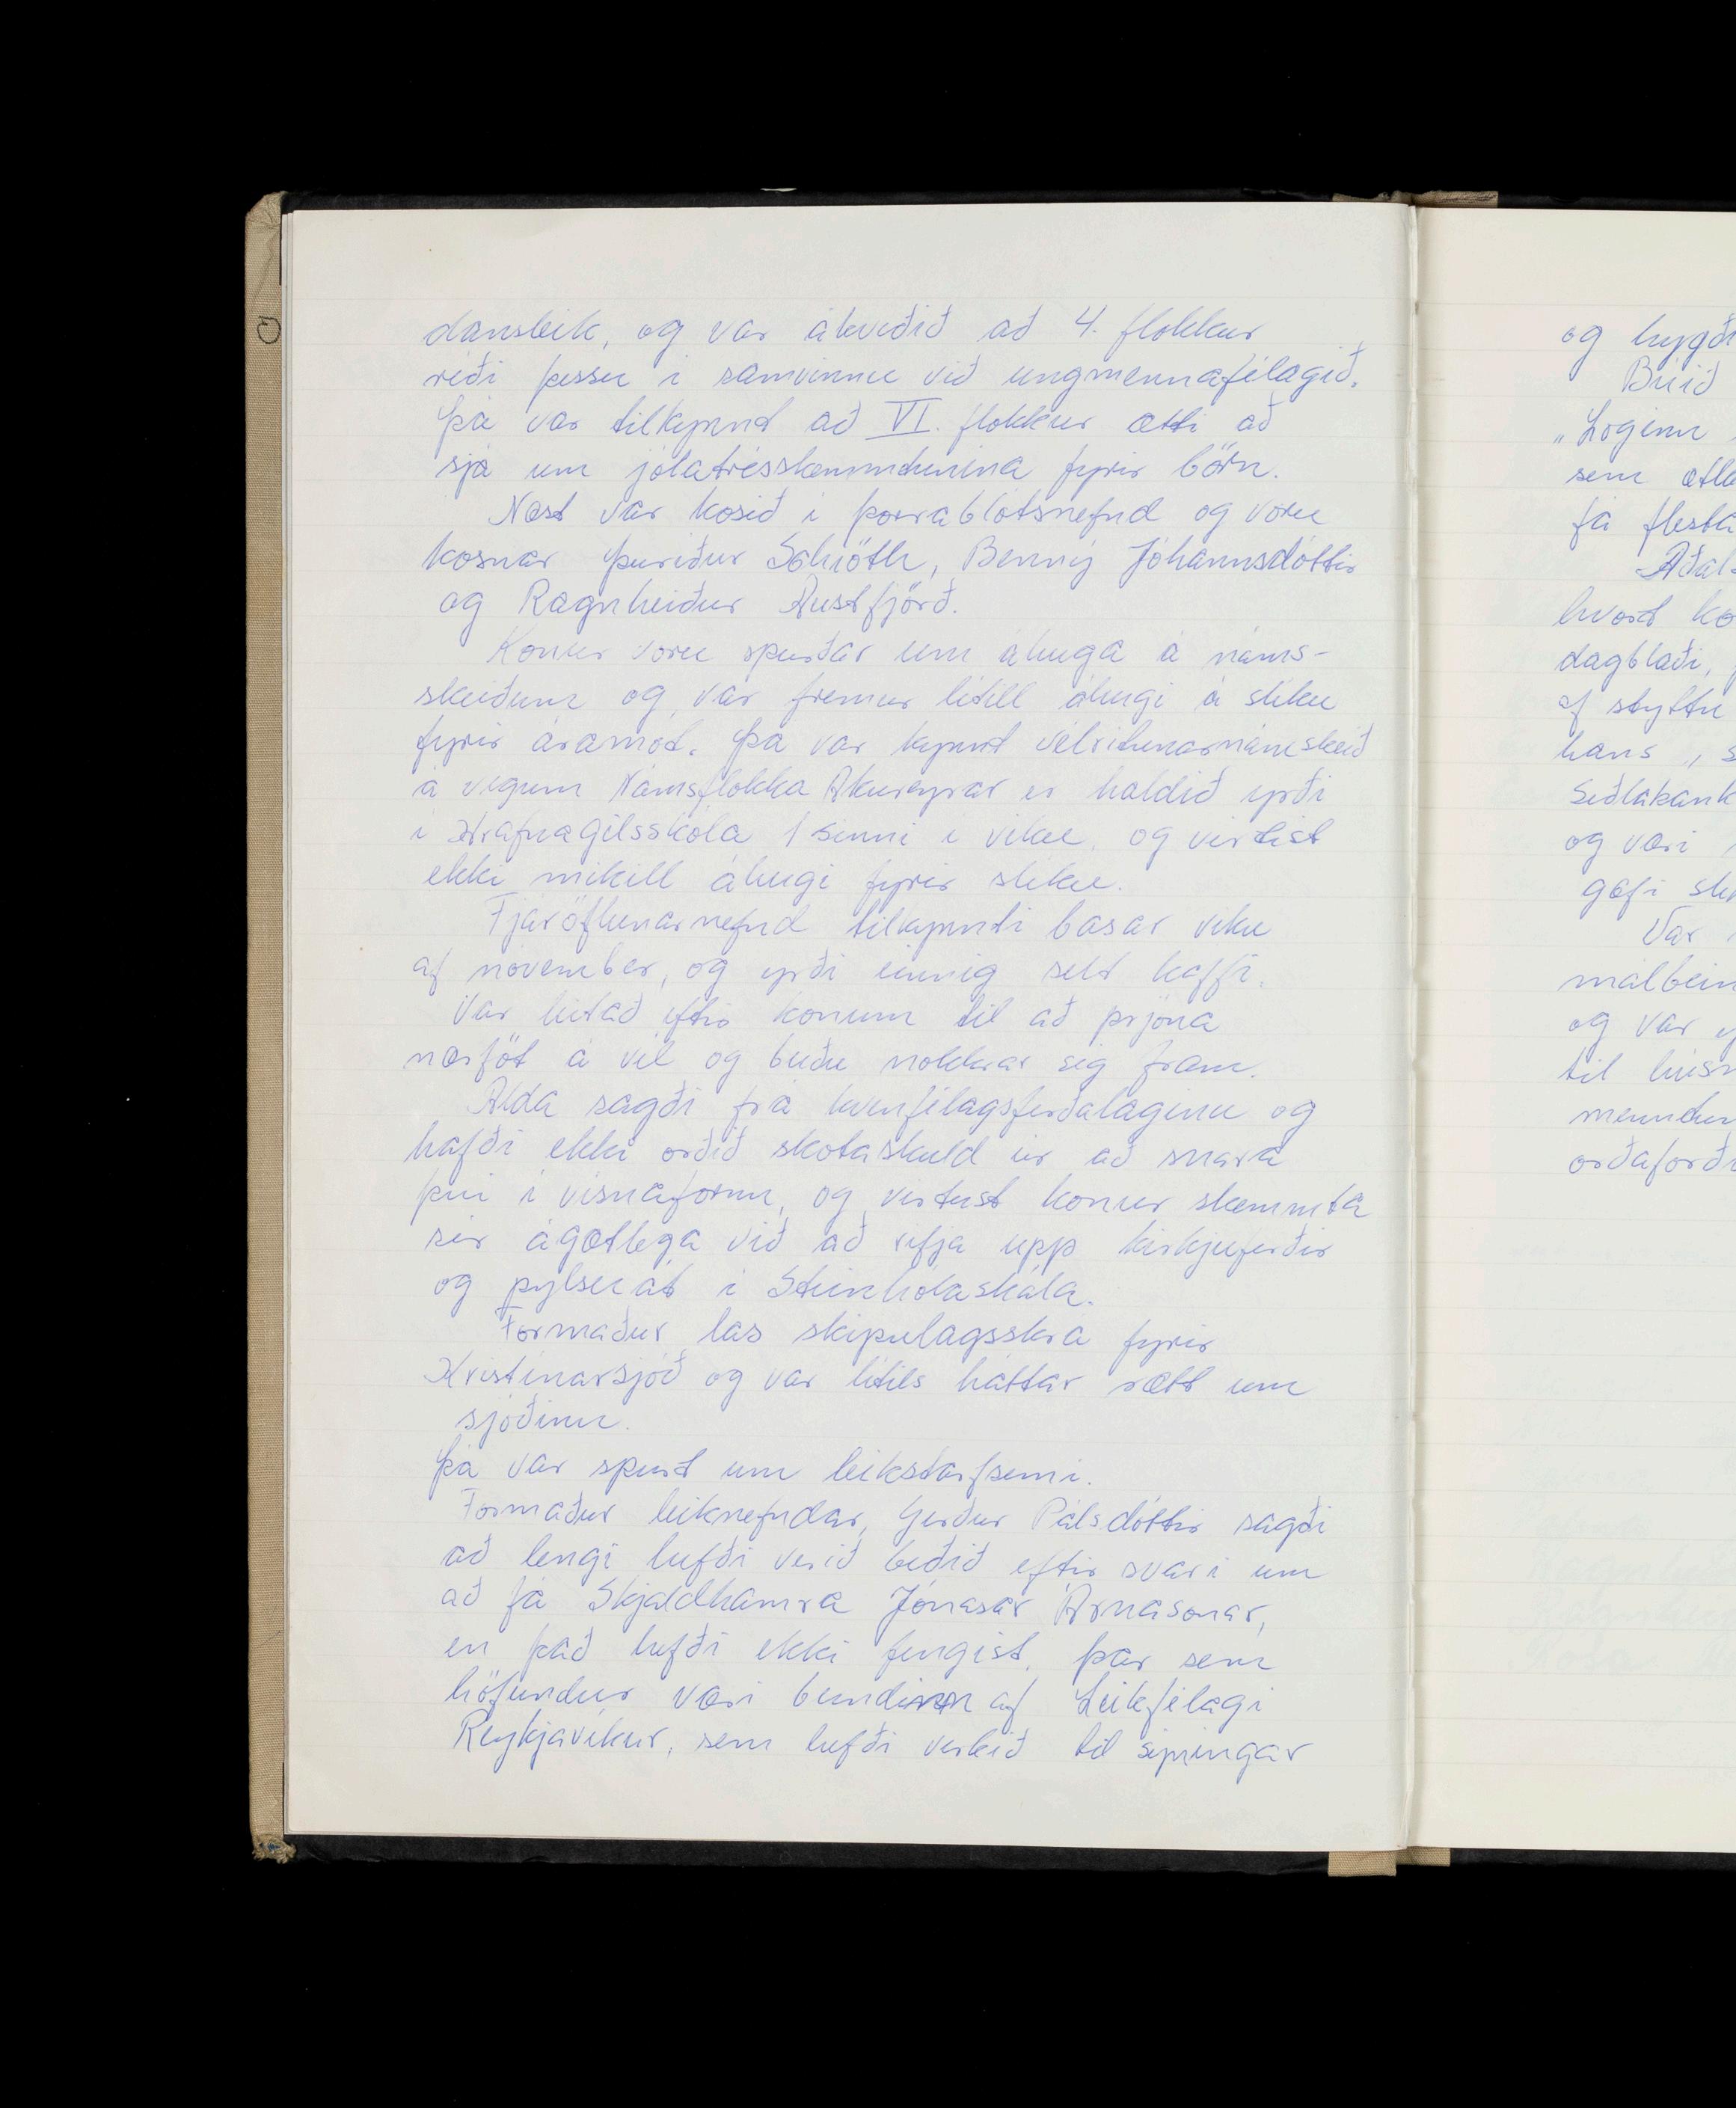 dansleik, og var ákveðið að 4. flokkur
réði þessu í samvinnu við ungmennafélagið.
Þá var tilkynnt að VI. flokkur ætti að
sjá um jólatrésskemmtunina fyrir börn.
Næst var kosið í þorrablótsnefnd og voru
kosnar Þuríður Schiöth, Benný Jóhannsdóttir
og Ragnheiður Austfjörð.
Konur voru spurðar um áhuga á náms-
skeiðum og var fremur lítill áhugi á slíku
fyrir áramót. Þá var kynnt vélritunarnámskeið
á vegum Námsflokka Akureyrar er haldið yrði
í Hrafnagilsskóla 1 sinni í viku, og virtist
ekki mikill áhugi fyrir slíku.
Fjáröflunarnefnd tilkynnti basar viku
af nóvember, og yrði einnig selt kaffi.
Var leitað eftir konum til að prjóna
nærföt á vél og buðu nokkrar sig fram.
Alda sagði frá kvenfélagsferðalaginu og
hafði ekki orðið skotaskuld úr að snara
því í vísnaform, og virtust konur skemmta
sér ágætlega við að rifja upp kirkjuferðir
og pylsuát í Steinhólaskála.
Formaður las skipulagsskrá fyrir
Kristínarsjóð og var lítils háttar rætt um
sjóðinn.
Þá var spurt um leikstarfsemi.
Formaður leiknefndar, Gerður Pálsdóttir sagði
að lengi hefði verið beðið eftir svari um
að fá Skjaldhamra Jónasar Árnasonar,
en það hefði ekki fengist, þar sem
höfundur væri bundinn af Leikfélagi
Reykjavíkur, sem hefði verkið til sýningar
og bygð
Búið
„Loginn
sem ætla
fá flesta
Aðals
hvort ko
dagblaði,
af styttu
hans „s
Seðlabank
og væri
gæfi
Var
málbein
og var
til húsn
orðaforð